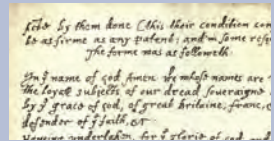 acte by them done (this their condition con
be as firme as any patent; and in some resp
The forme was as followeth.
In yͤ name of god Amen. we whose names are
the loyall subjects of our dread soveraigne
by yͤ grace of god, of great britaine, franc, e
defender of yͤ faith, &c
Haveing undertaken, for yͤ glorie of god, and